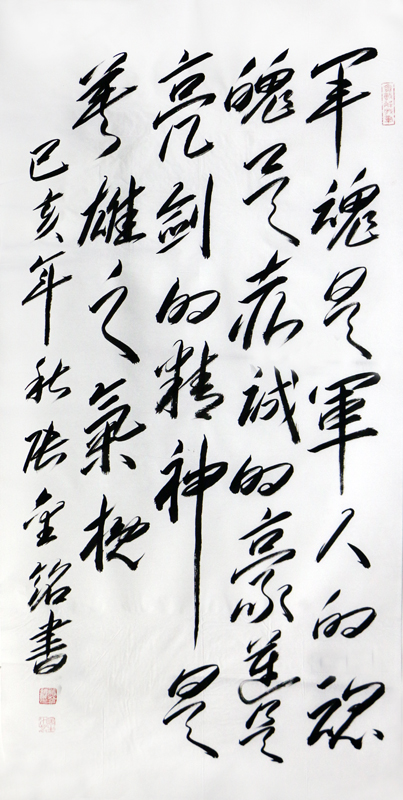 軍魂是軍人的魂
魄是赤誠的豪邁是
亮劍的精神是
英雄之氣概
己亥年秋張金銘書